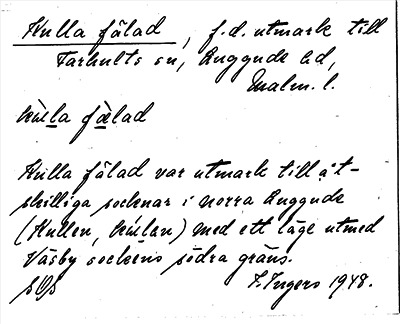 Kulla fälad, f.d. utmark till
Farhults sn, Luggude hd,
Malm. l.
kùlla fæ̀lad
Kulla fälad var utmark till åt-
skilliga socknar i norra Luggude
(Kullen, ) med ett läge utmed
Väsby sockens södra gräns.
F. Ingers 1948.